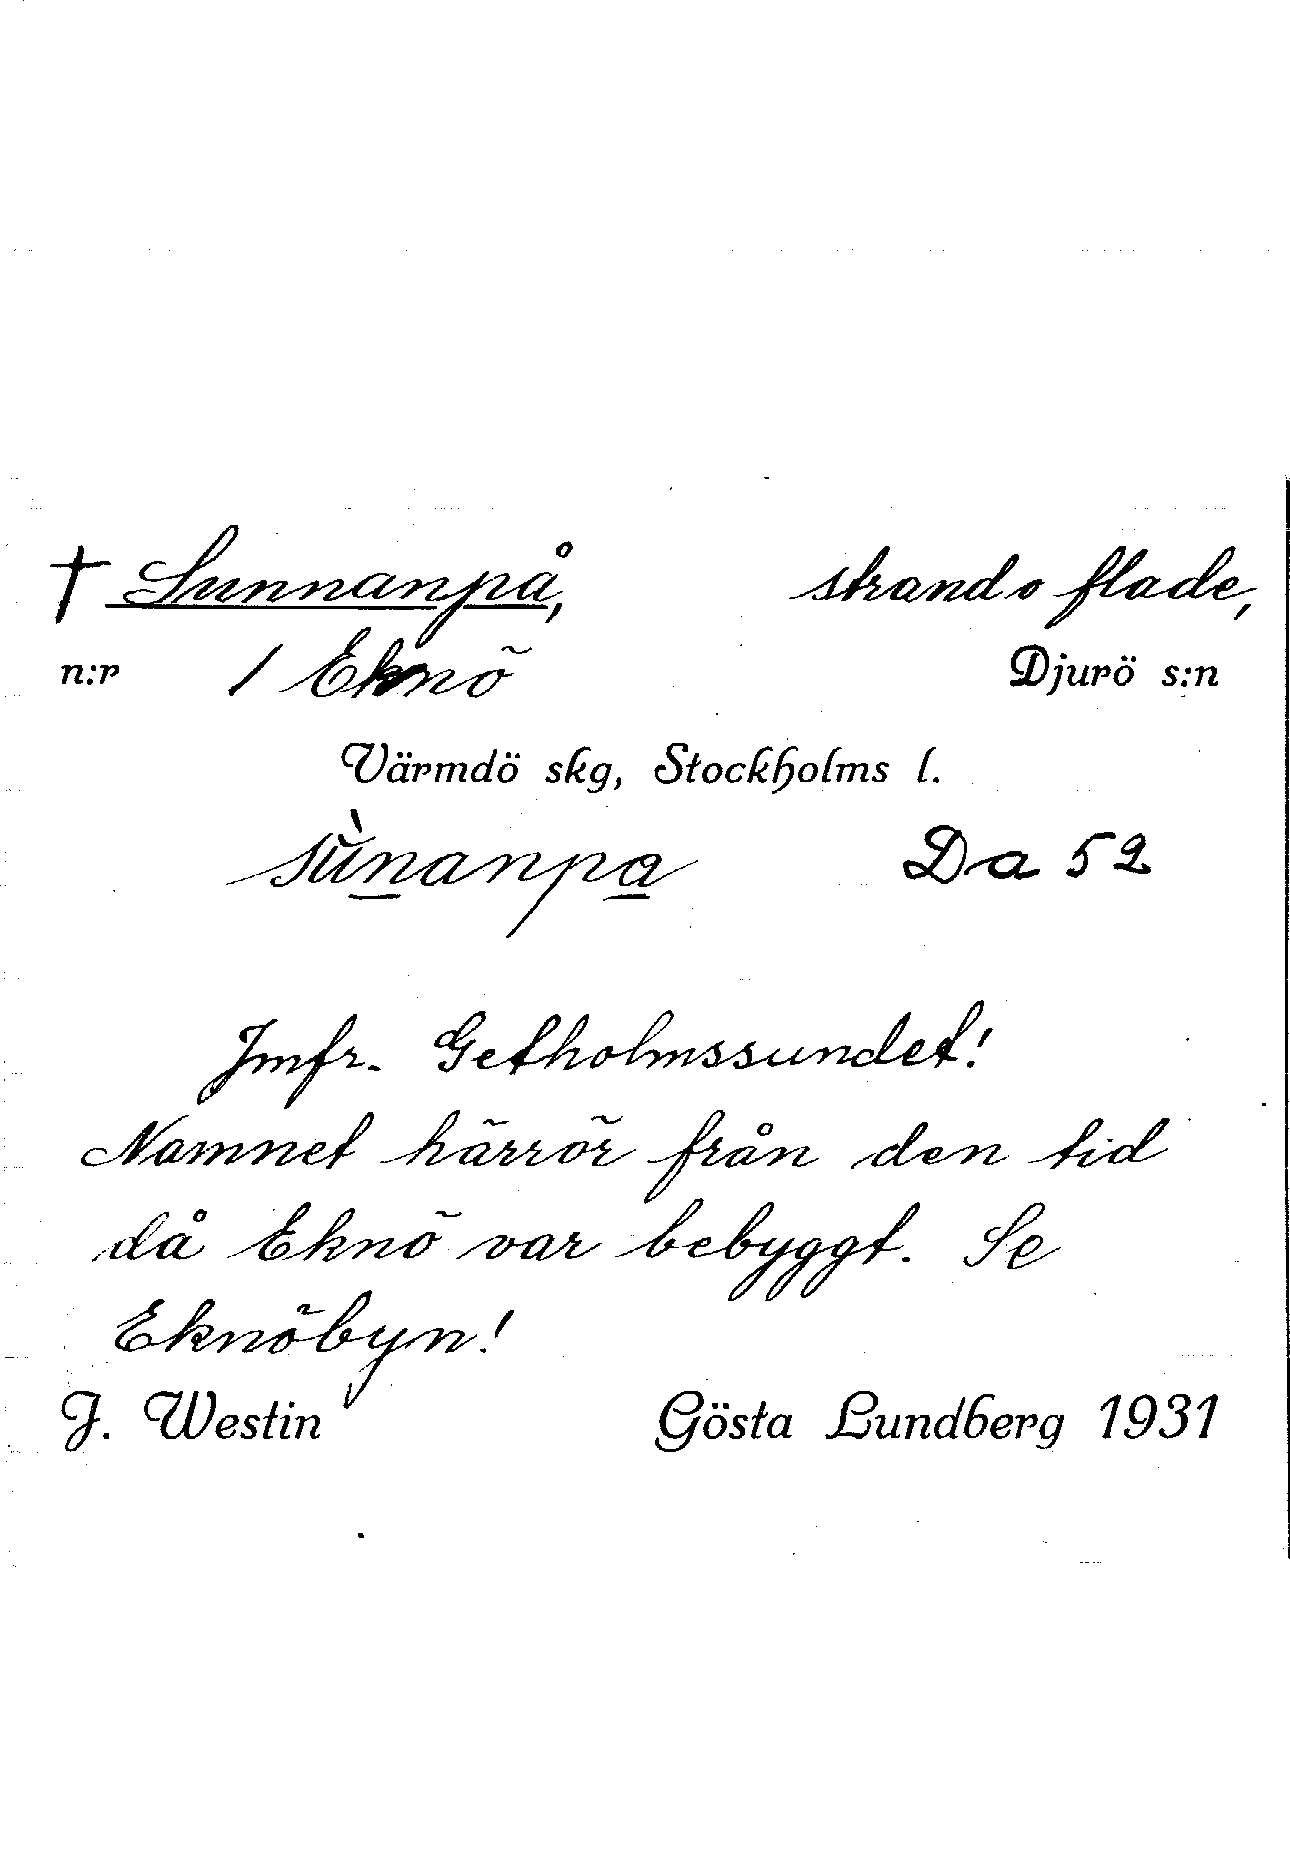 † Sunnanpå, strand o flade,
n:r 1 Eknö Djurö s:n
Värmdö skg, Stockholms l.
sǜnanpa Da 52
Jmfr. Getholmssundet!
Namnet härrör från den tid
då Eknö var bebyggt. Se
Eknöbyn!
J. Westin Gösta Lundberg 1931